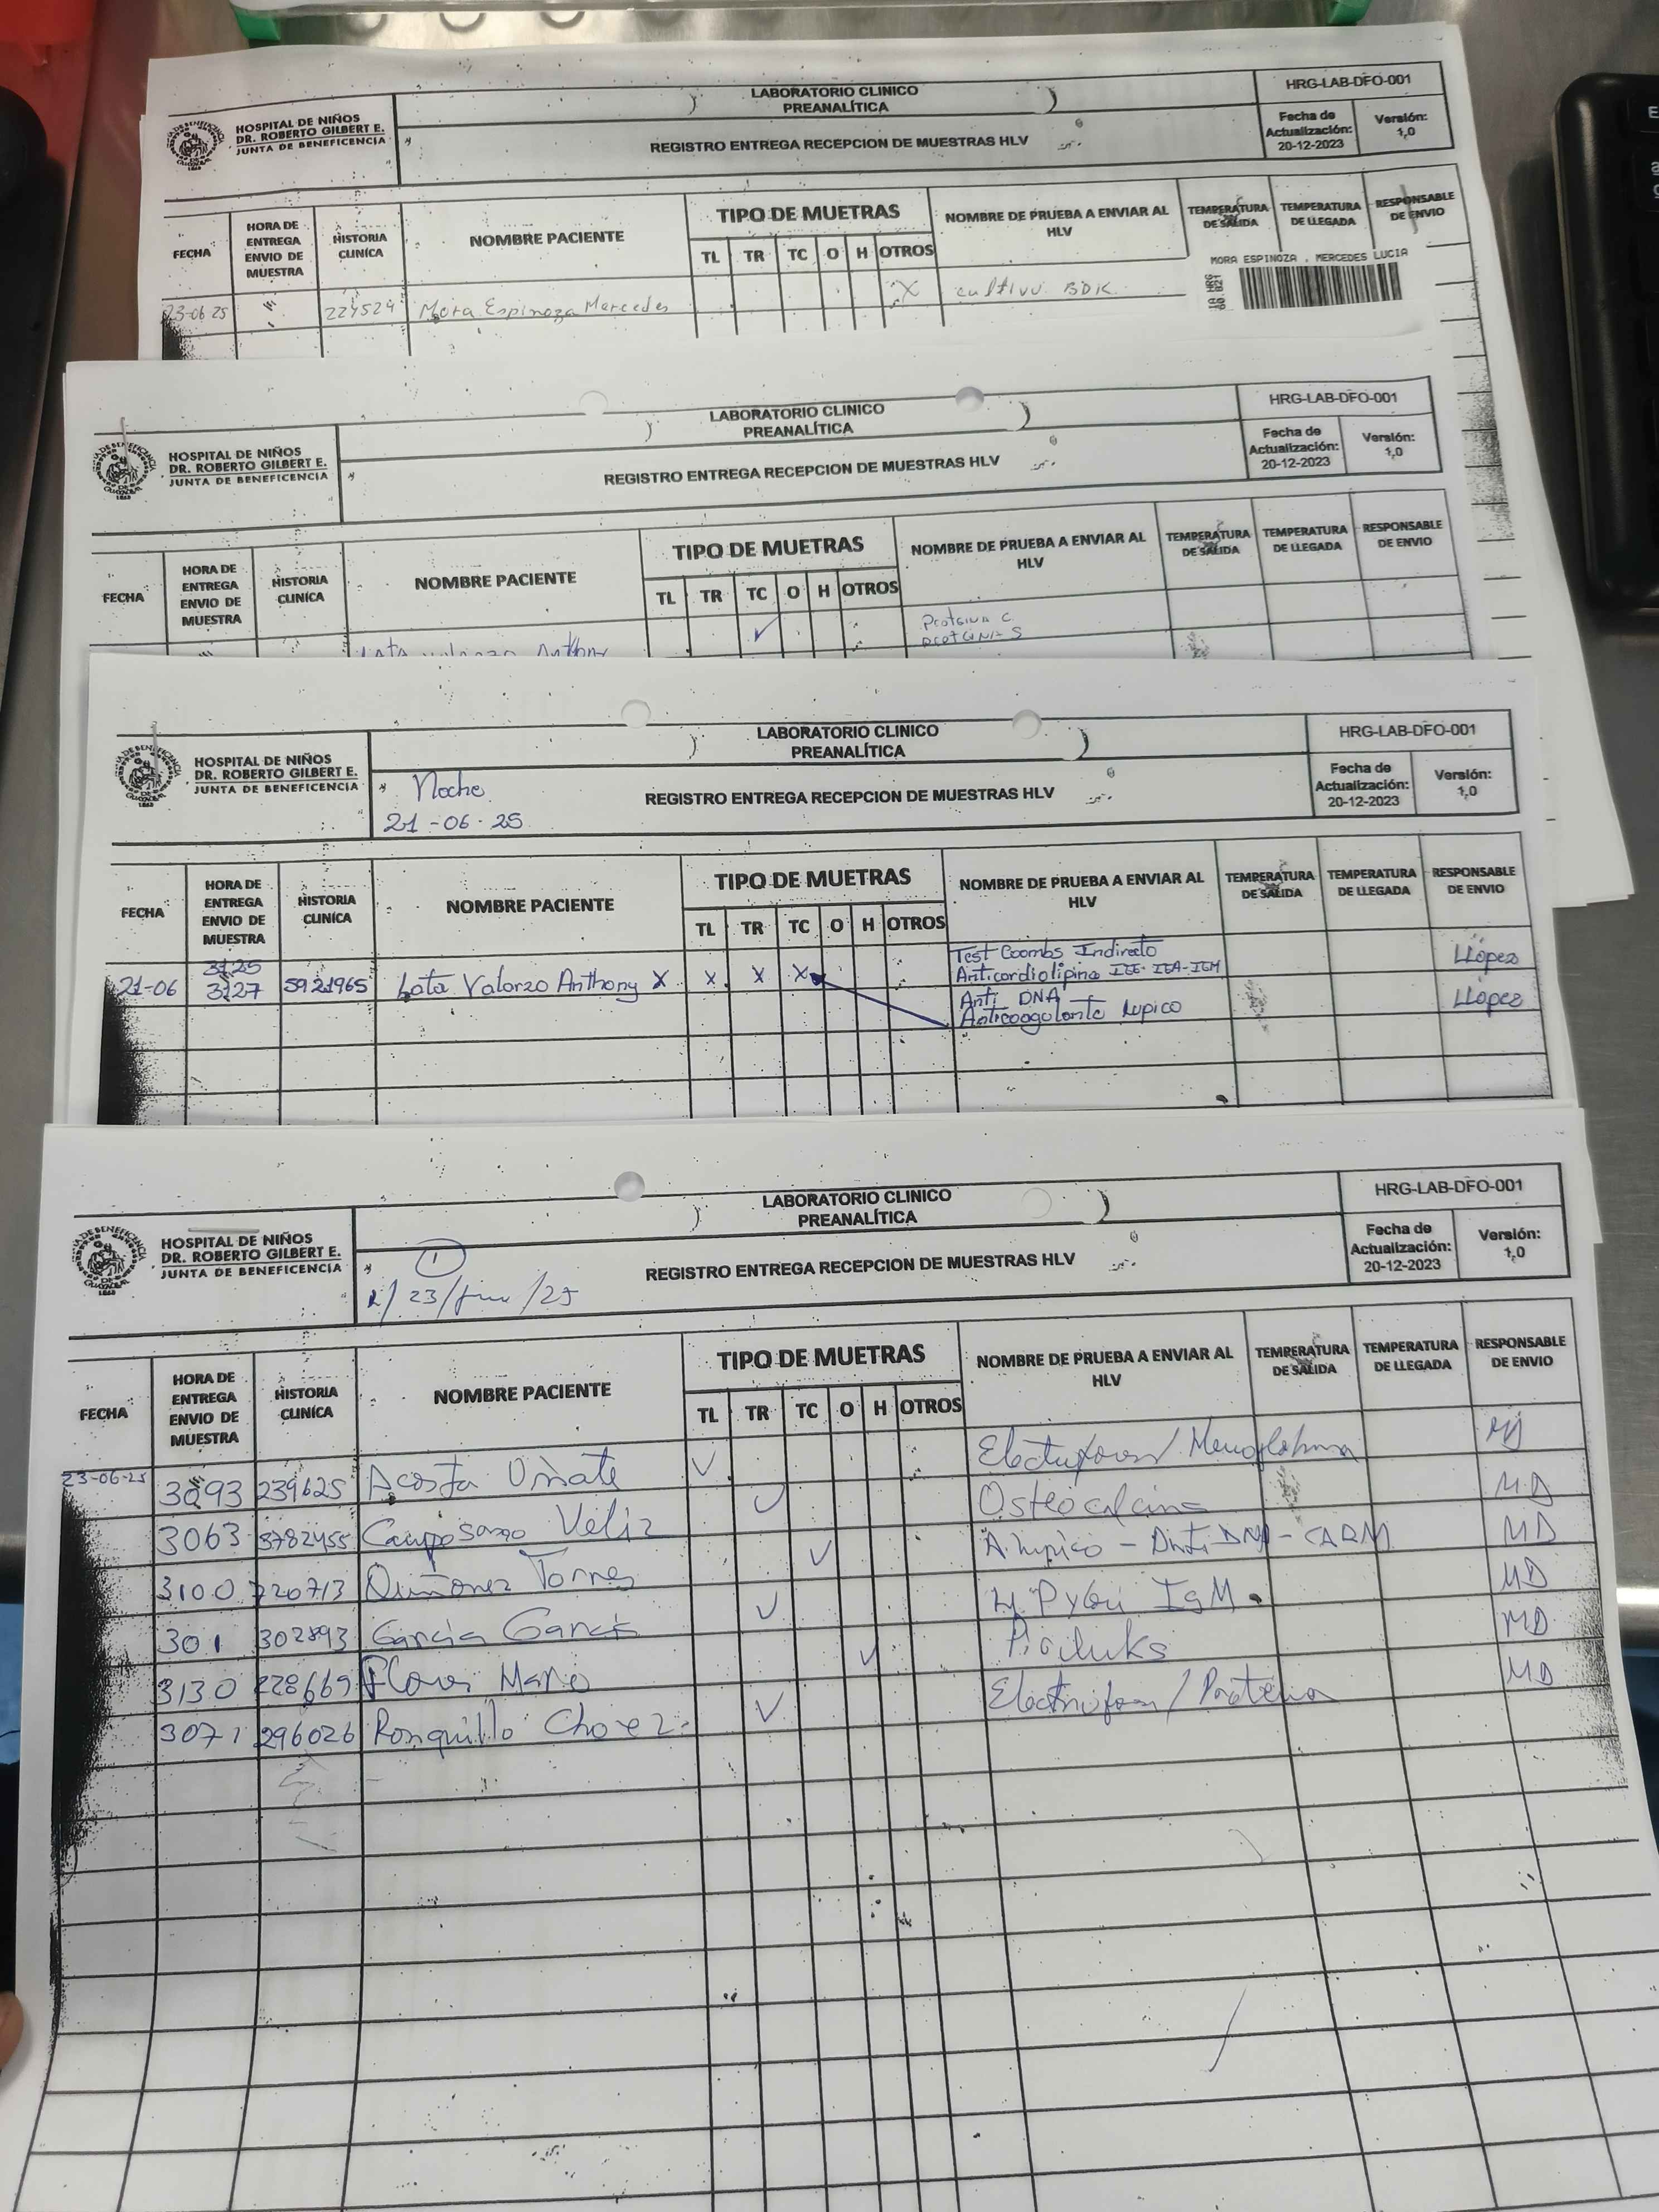 LABORATORIO CLINICO
PREANALÍTICA
HRG-LAB-DFO-001
HOSPITAL DE NIÑOS
DR. ROBERTO GILBERT E.
JUNTA DE BENEFICENCIA
REGISTRO ENTREGA RECEPCION DE MUESTRAS HLV
Fecha de Actualización: 20-12-2023
Versión: 1,0
FECHA
HORA DE ENTREGA ENVIO DE MUESTRA
HISTORIA CLINÍCA
NOMBRE PACIENTE
TIPO DE MUETRAS
TL TR TC O H OTROS
NOMBRE DE PRUEBA A ENVIAR AL HLV
TEMPERATURA DE SALIDA
TEMPERATURA DE LLEGADA
RESPONSABLE DE ENVIO
MORA ESPINOZA , MERCEDES LUCIA
23-06 25 224524 Mora Espinoza Mercedes X cultivo BDK
LABORATORIO CLINICO
PREANALÍTICA
HRG-LAB-DFO-001
HOSPITAL DE NIÑOS
DR. ROBERTO GILBERT E.
JUNTA DE BENEFICENCIA
REGISTRO ENTREGA RECEPCION DE MUESTRAS HLV
Fecha de Actualización: 20-12-2023
Versión: 1,0
FECHA
HORA DE ENTREGA ENVIO DE MUESTRA
HISTORIA CLINÍCA
NOMBRE PACIENTE
TIPO DE MUETRAS
TL TR TC O H OTROS
NOMBRE DE PRUEBA A ENVIAR AL HLV
TEMPERATURA DE SALIDA
TEMPERATURA DE LLEGADA
RESPONSABLE DE ENVIO
✓ Proteina C
Proteina S
Anthony
LABORATORIO CLINICO
PREANALÍTICA
HRG-LAB-DFO-001
HOSPITAL DE NIÑOS
DR. ROBERTO GILBERT E.
JUNTA DE BENEFICENCIA
Noche
21-06-25
REGISTRO ENTREGA RECEPCION DE MUESTRAS HLV
Fecha de Actualización: 20-12-2023
Versión: 1,0
FECHA
HORA DE ENTREGA ENVIO DE MUESTRA
HISTORIA CLINÍCA
NOMBRE PACIENTE
TIPO DE MUETRAS
TL TR TC O H OTROS
NOMBRE DE PRUEBA A ENVIAR AL HLV
TEMPERATURA DE SALIDA
TEMPERATURA DE LLEGADA
RESPONSABLE DE ENVIO
3125 Test Coombs Indirecto LLópez
21-06 3127 5921965 Lata Valarzo Anthony X X X X Anticardiolipina IGG-IGA-IGM
Anti DNA LLópez
Anticoagulante Lupico
LABORATORIO CLINICO
PREANALÍTICA
HRG-LAB-DFO-001
HOSPITAL DE NIÑOS
DR. ROBERTO GILBERT E.
JUNTA DE BENEFICENCIA
1
23/ /25
REGISTRO ENTREGA RECEPCION DE MUESTRAS HLV
Fecha de Actualización: 20-12-2023
Versión: 1,0
FECHA
HORA DE ENTREGA ENVIO DE MUESTRA
HISTORIA CLINÍCA
NOMBRE PACIENTE
TIPO DE MUETRAS
TL TR TC O H OTROS
NOMBRE DE PRUEBA A ENVIAR AL HLV
TEMPERATURA DE SALIDA
TEMPERATURA DE LLEGADA
RESPONSABLE DE ENVIO
23-06-25 3093 239625 Acosta Oñate ✓
3063 3782455 Camposano Veliz ✓ Osteocalcina MD
3100 720713 Quiñonez Torres ✓ A. lupico - MD
301 302893 Garcia Garcia ✓ H Pylori IgM MD
3130 228669 Flores ✓ MD
3071 296026 Ronquillo Chavez ✓ MD